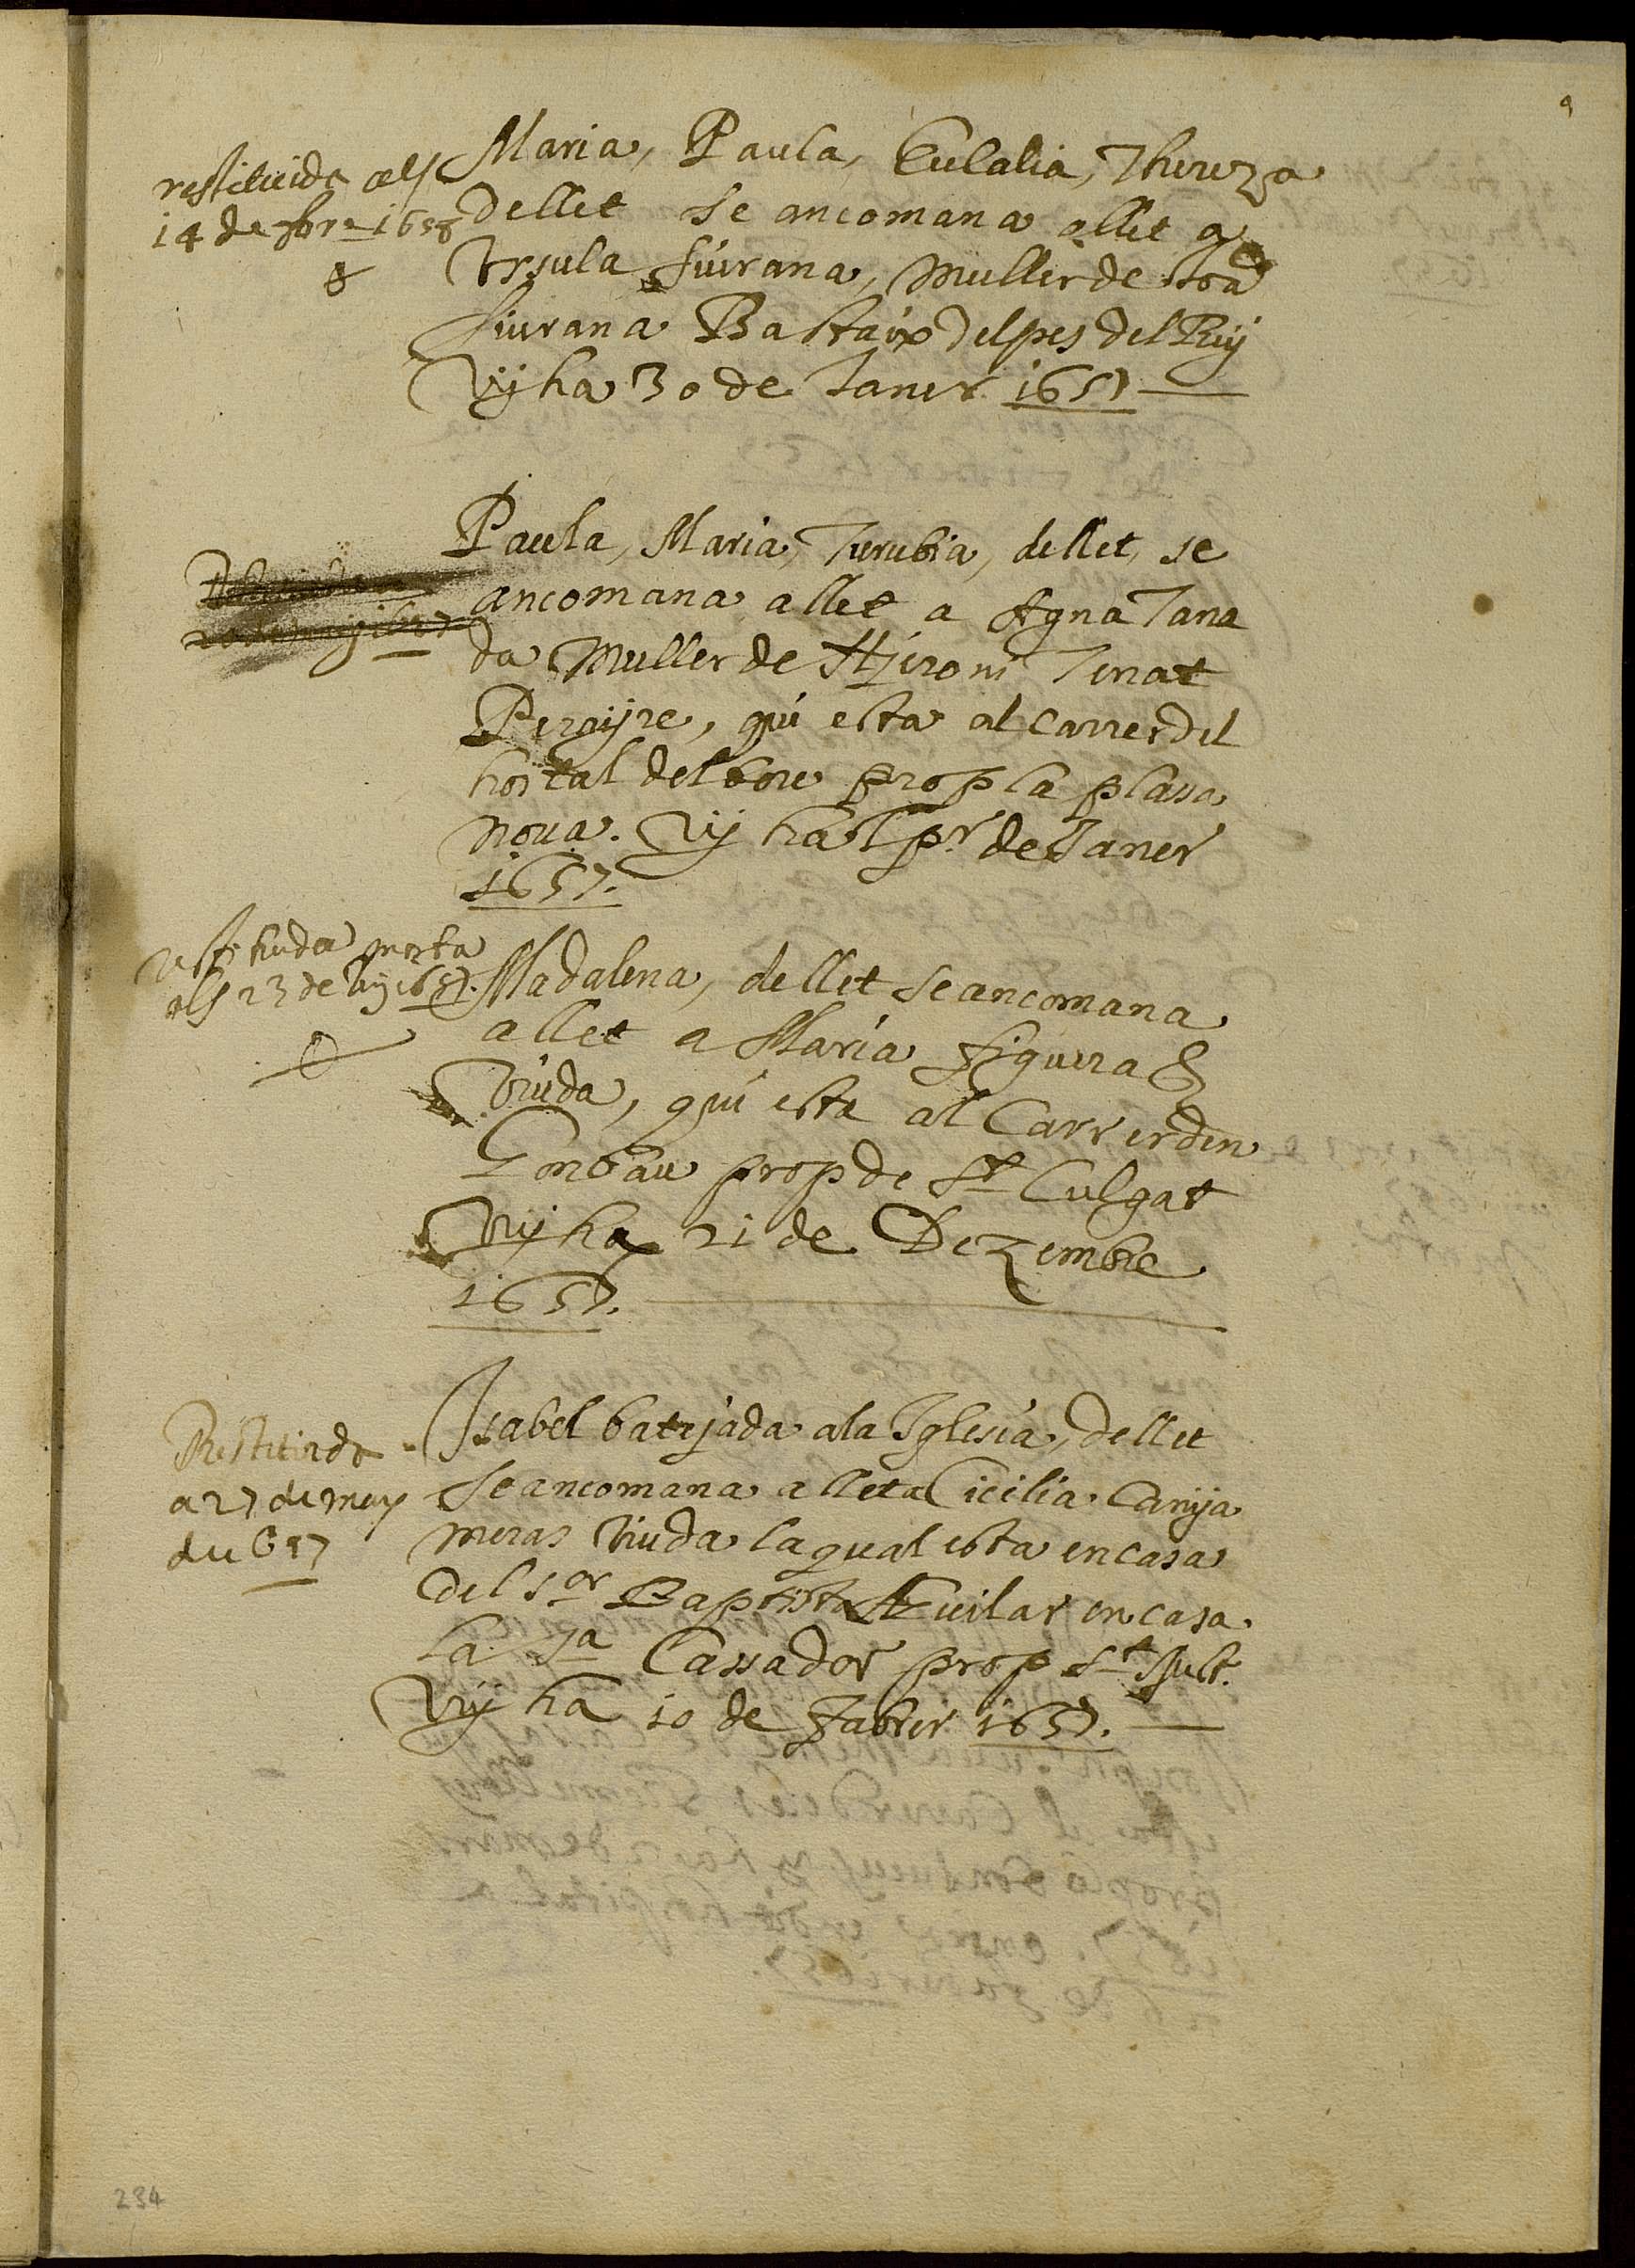 9
restituida als
14 de fbre 1658
Maria, Paula, Eulalia, Thereza
dellet se ancomana allet a
Ursula siurana, Muller de Joa
siurana Bastaix del pes del Rey
Vy ha 30 de Janer 1657
Paula, Maria, dellet, se
ancomana allet a Agna Tana
da Muller de Hieroni Tenat
Perayre, qui esta al Carrer del
hostal del bou prop la plassa
Nova. Vy ha l pr de Janer
1657.
restituida morta
als 23 de 1657.
Madalena, dellet se ancomana
allet a Maria figuera
Viuda, qui esta al Carrer den
Gombau prop de St Culgat
Vy ha 21 de Dezembre
1657.
Restituida
a 27 de may
de 657
Isabel batejada a la Iglesia, dellet
se ancomana allet a Cicilia Canya
meras Viuda la qual esta en casa
del sor Baptista Aguilar en casa
la Sa Cassador prop St Just.
Vy ha 10 de Fabrer 1657.
234